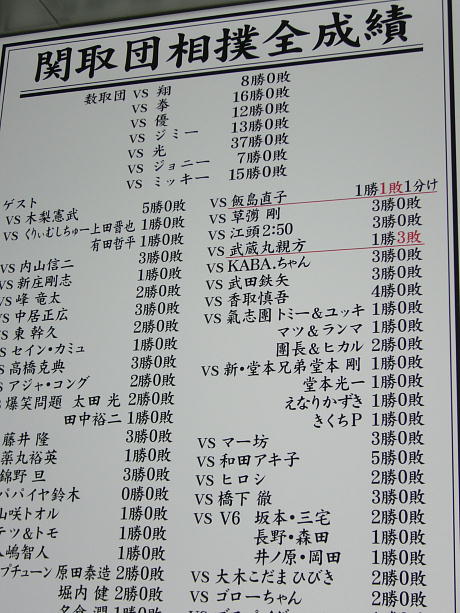 関取団相撲全成績
数取団 VS 翔 8勝0敗
VS 拳 16勝0敗
VS 優 12勝0敗
VS ジミー 13勝0敗
VS 光 37勝0敗
VS ジョニー 7勝0敗
VS ミッキー 15勝0敗
ゲスト
VS 木梨憲武 5勝0敗
VS くりぃむしちゅー上田晋也 1勝0敗
有田哲平 1勝0敗
VS 内山信二 3勝0敗
VS 新庄剛志 1勝0敗
VS 峰 竜太 2勝0敗
VS 中居正広 3勝0敗
VS 東 幹久 2勝0敗
S セイン・カミュ 1勝0敗
S 高橋克典 3勝0敗
アジャ・コング 2勝0敗
爆笑問題 太田 光 2勝0敗
田中裕二 1勝0敗
藤井 隆 3勝0敗
薬丸裕英 1勝0敗
錦野 旦 3勝0敗
パパイヤ鈴木 0勝0敗
山咲トオル 1勝0敗
テツ&トモ 1勝0敗
嶋智人 1勝0敗
プチューン 原田泰造 2勝0敗
堀内 健 2勝0敗
名倉 潤 1勝0敗
VS 飯島直子 1勝1敗1分け
VS 草彅 剛 3勝0敗
VS 江頭2:50 3勝0敗
VS 武蔵丸親方 1勝3敗
VS KABA.ちゃん 3勝0敗
VS 武田鉄矢 3勝0敗
VS 香取慎吾 4勝0敗
VS 氣志團 トミー&ユッキ 1勝0敗
マツ&ランマ 1勝0敗
團長&ヒカル 2勝0敗
VS 新・堂本兄弟 堂本 剛 1勝0敗
堂本光一 1勝0敗
えなりかずき 1勝0敗
きくちP 1勝0敗
VS マー坊 3勝0敗
VS 和田アキ子 5勝0敗
VS ヒロシ 2勝0敗
VS 橋下 徹 3勝0敗
VS V6 坂本・三宅 2勝0敗
長野・森田 1勝0敗
井ノ原・岡田 1勝0敗
VS 大木こだまひびき 2勝0敗
VS ゴローちゃん 2勝0敗